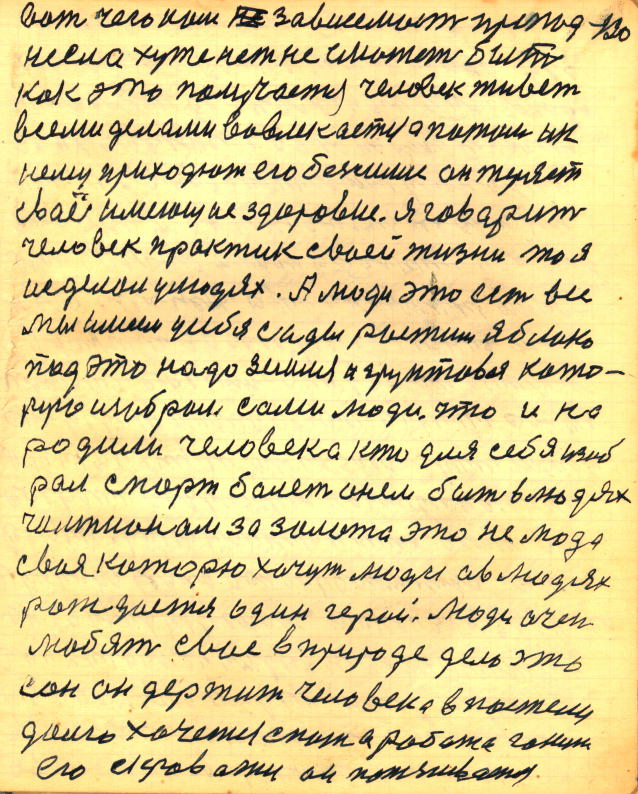 вот чего нам не зависемост препод-
несла хуже нет не сможет быть
как это получается человек живет
всеми делами вовлекается а потом ик
нему приходют его безсилие он теряет
сваё имеющие здоровие. Я говарит
человек практик своей жизни то я
не делаи улюдях. А люди это ест все
мы имеем у себя сады ростим яблоко
под это надо земля и грунтовая кото-
рую избрали сами люди. что и на
родили человека кто для себя изоб
рал спорт болет онем быт в людях
чемпионам за золота это не мода
своя которю хочут люди а в людях
рождается один герой. Люди очен
любят свое в природе дело это
сон он держит человека в постели
долго хочется спат а робота гонит
его скровати он потягивается